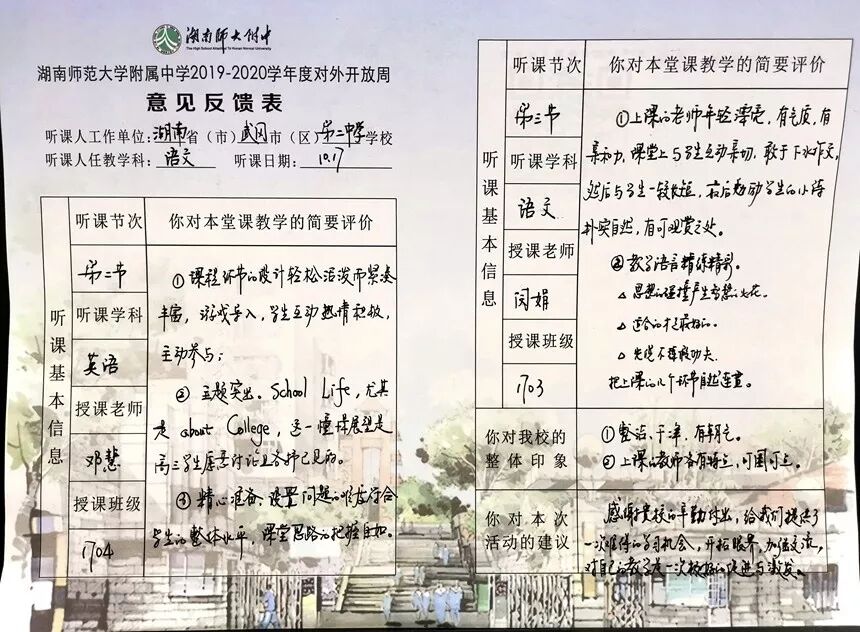 湖南师大附中
The High School Attached To Hunan Normal University
湖南师范大学附属中学2019-2020学年度对外开放周
意见反馈表
听课人工作单位:湖南省(市)武冈市(区)第二中学学校
听课人任教学科:语文 听课日期:10.17
听课基本信息
听课节次
你对本堂课教学的简要评价
第二节
听课学科
英语
授课老师
邓慧
授课班级
1704
①课程环节的设计轻松活泼而紧凑
丰富,游戏导入,学生互动热情积极,
主动参与;
②主题突出。School Life,尤其
是 about College,这一憧憬展望是
高三学生愿意讨论且各抒己见的。
③精心准备、设置问题的难度符合
学生的整体水平,课堂思路的把握自如。
听课基本信息
听课节次
你对本堂课教学的简要评价
第三节
听课学科
语文
授课老师
闵娟
授课班级
1703
①上课的老师年轻漂亮,有气质,有
亲和力,课堂上与学生互动亲切,敢于下水作文,
然后与学生一较长短,最后学生的小诗
朴实自然,有可观赏之处。
②教学语言精练精彩。
△思想的碰撞产生智慧的火花。
△适合的才是最好的。
△先说不算功夫.
把上课的几个环节自然连贯。
你对我校的
整体印象
①整洁、干净,有朝气。
②上课的教师各有特点,可圈可点。
你对本次
活动的建议
感谢贵校的辛勤付出,给我们提供了
一次难得的学习机会,开拓眼界,加强交流,
对自己的教学是一次极好的促进与激发。